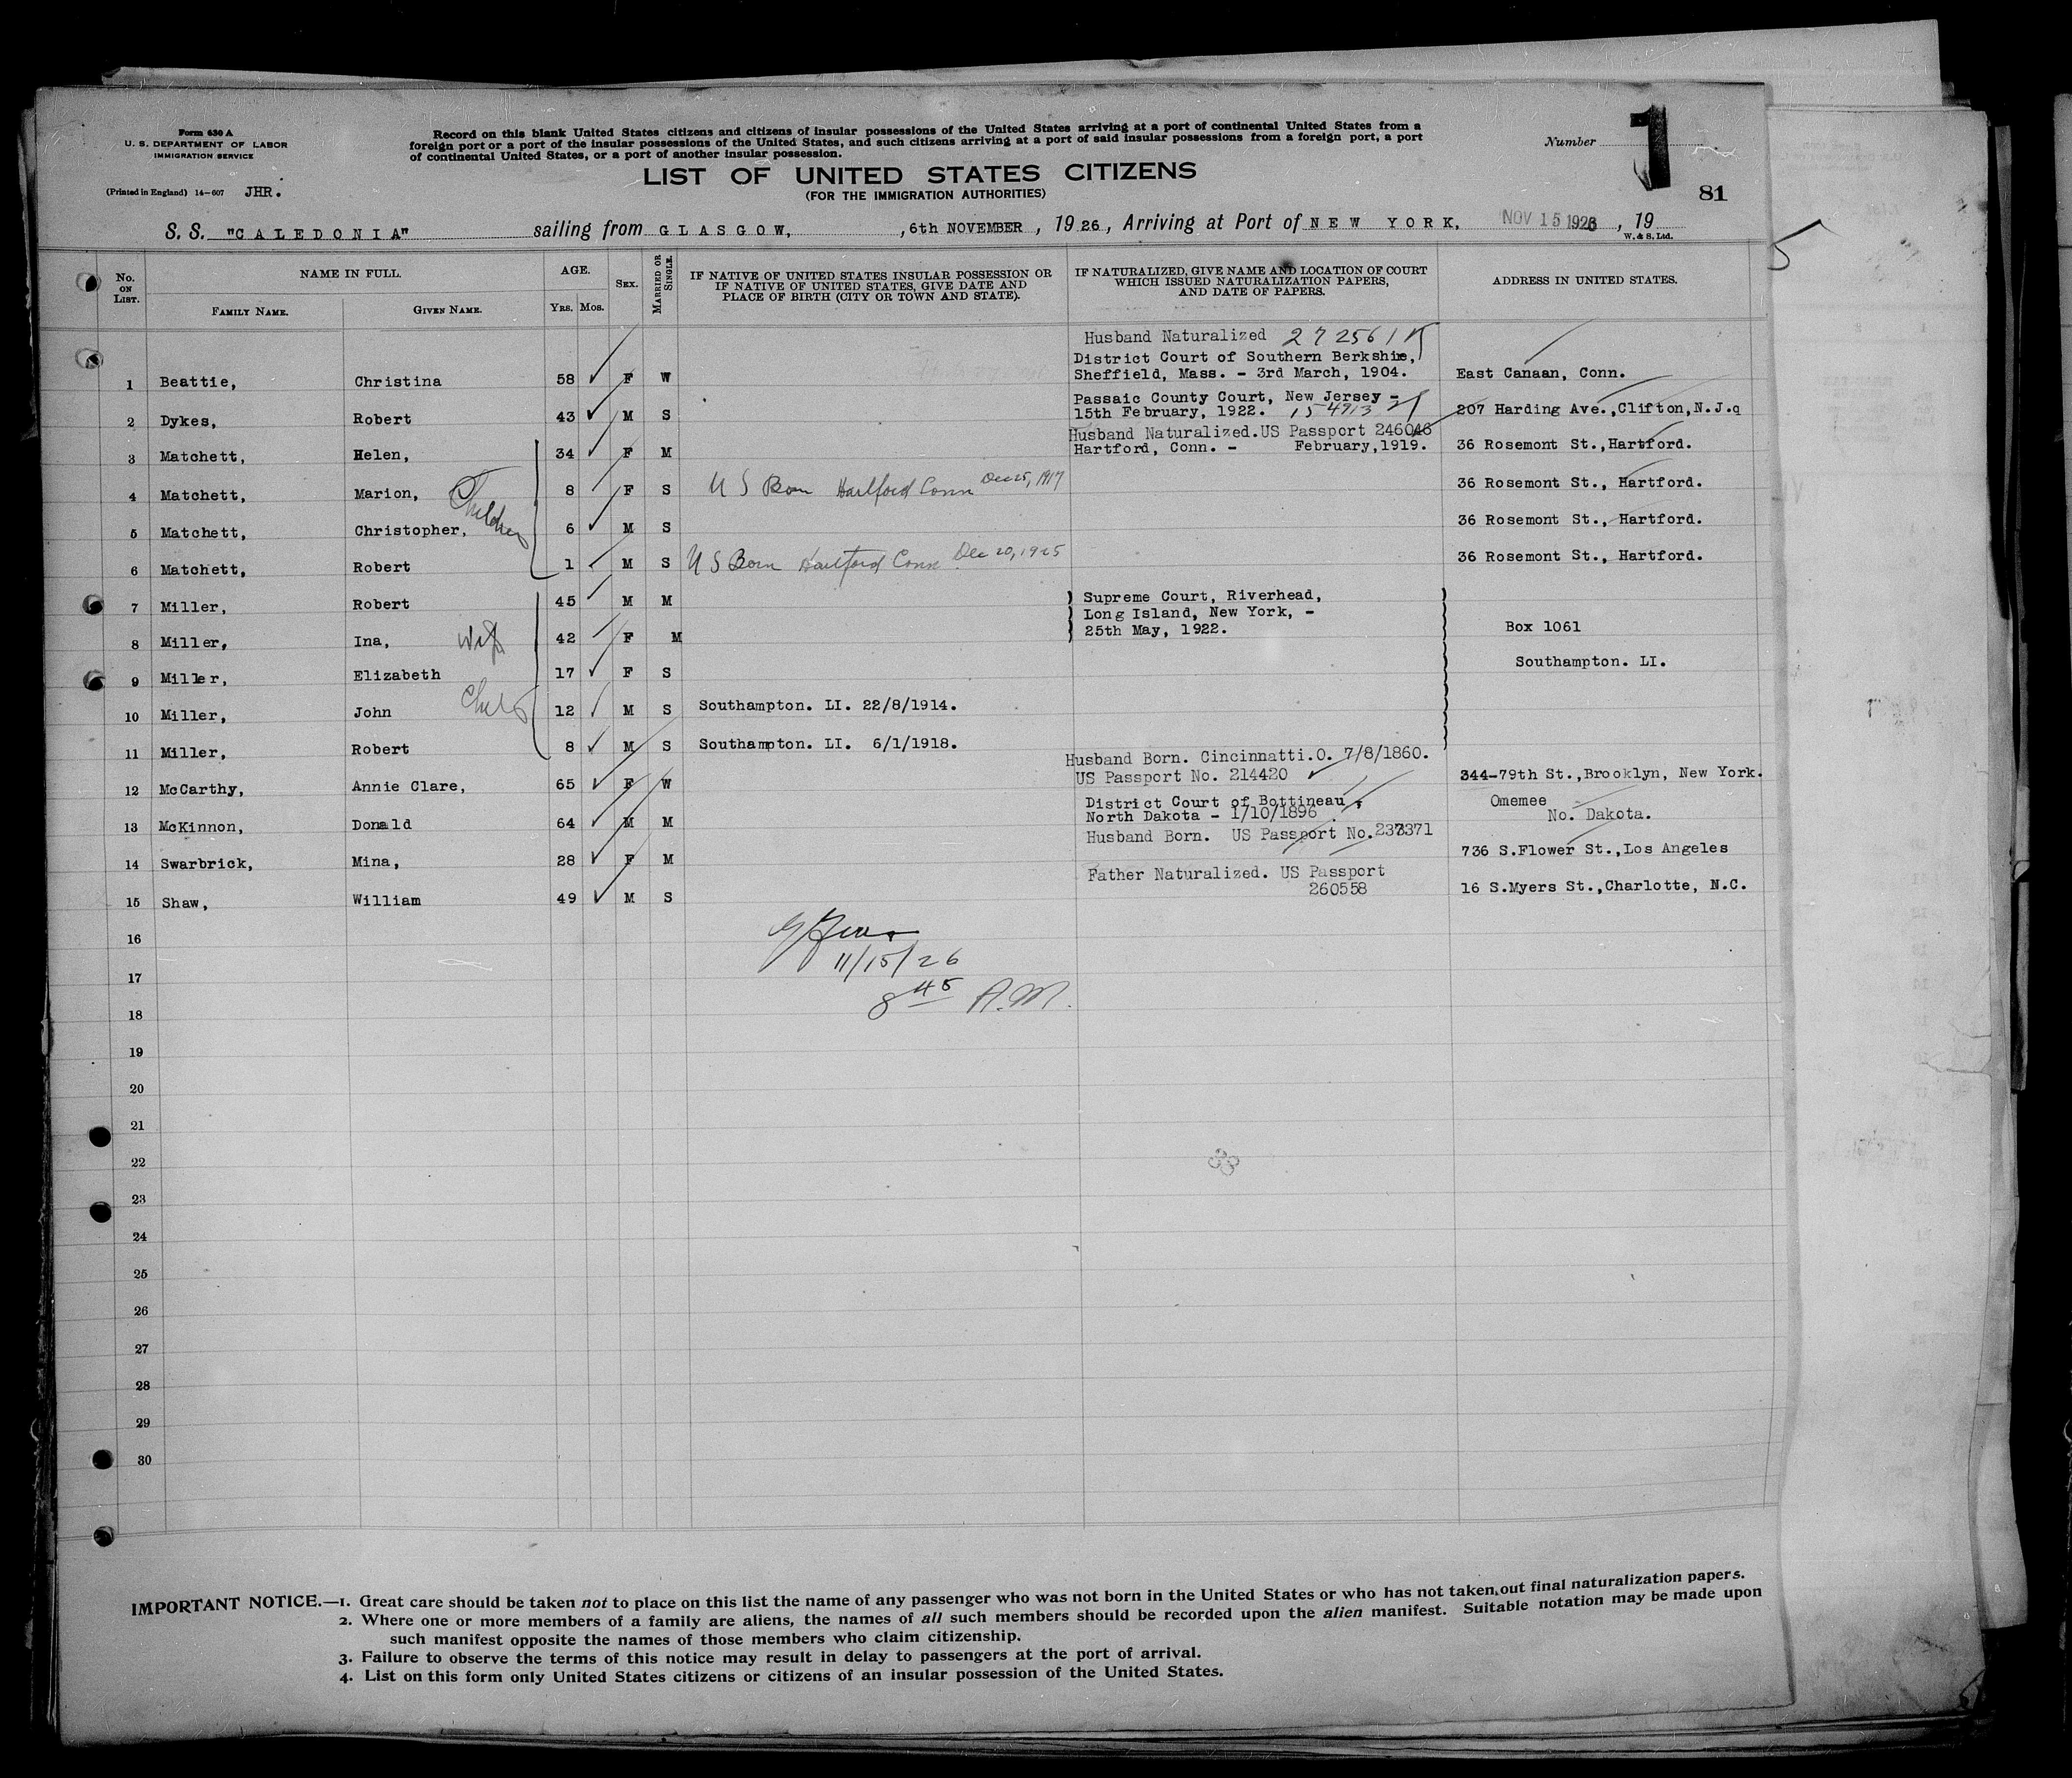 Form 630 A
U. S. DEPARTMENT OF LABOR
IMMIGRATION SERVICE
(Printed in England) 14-607 JHR.
Record on this blank United States citizens and citizens of insular possessions of the United States arriving at a port of continental United States from a
foreign port or a port of the insular possessions of the United States, and such citizens arriving at a port of said insular possessions from a foreign port, a port
of continental United States, or a port of another insular possession.
Number 1
81
LIST OF UNITED STATES CITIZENS
(FOR THE IMMIGRATION AUTHORITIES)
S. S. "CALEDONIA" sailing from GLASGOW, , 6th NOVEMBER , 1926, Arriving at Port of NEW YORK, NOV 15 1926 , 19
W. & S. Ltd.
5
No. ON LIST. NAME IN FULL. AGE. SEX. MARRIED OR SINGLE. IF NATIVE OF UNITED STATES INSULAR POSSESSION OR IF NATIVE OF UNITED STATES, GIVE DATE AND PLACE OF BIRTH (CITY OR TOWN AND STATE). IF NATURALIZED, GIVE NAME AND LOCATION OF COURT WHICH ISSUED NATURALIZATION PAPERS, AND DATE OF PAPERS. ADDRESS IN UNITED STATES.
FAMILY NAME. GIVEN NAME. YRS. MOS.
Husband Naturalized 272561
District Court of Southern Berkshire,
1 Beattie, Christina 58 F W Sheffield, Mass. - 3rd March, 1904. East Canaan, Conn.
Passaic County Court, New Jersey -
2 Dykes, Robert 43 M S 15th February, 1922. 154913 207 Harding Ave.,Clifton,N.J.q
Husband Naturalized.US Passport 246046
3 Matchett, Helen, 34 F M Hartford, Conn. - February,1919. 36 Rosemont St.,Hartford.
4 Matchett, Marion, Children 8 F S U S Born Hartford Conn Dec 25, 1917 36 Rosemont St., Hartford.
5 Matchett, Christopher, 6 M S 36 Rosemont St., Hartford.
6 Matchett, Robert 1 M S U S Born Hartford Conn Dec 20, 1925 36 Rosemont St., Hartford.
7 Miller, Robert 45 M M Supreme Court, Riverhead,
Long Island, New York, -
8 Miller, Ina, Wife 42 F M 25th May, 1922. Box 1061
9 Miller, Elizabeth 17 F S Southampton. LI.
10 Miller, John 12 M S Southampton. LI. 22/8/1914.
11 Miller, Robert 8 M S Southampton. LI. 6/1/1918.
Husband Born. Cincinnatti.O. 7/8/1860.
12 McCarthy, Annie Clare, 65 F W US Passport No. 214420 344-79th St.,Brooklyn, New York.
District Court of Bottineau, Omemee
13 McKinnon, Donald 64 M M North Dakota - 1/10/1896 No. Dakota.
Husband Born. US Passport No.
14 Swarbrick, Mina, 28 F M 736 S.Flower St.,Los Angeles
Father Naturalized. US Passport
15 Shaw, William 49 M S 260558 16 S.Myers St.,Charlotte, N.C.
16
11/15/26
17
8 45 A.M.
18
19
20
21
22
23
24
25
26
27
28
29
30
IMPORTANT NOTICE.—1. Great care should be taken not to place on this list the name of any passenger who was not born in the United States or who has not taken out final naturalization papers.
2. Where one or more members of a family are aliens, the names of all such members should be recorded upon the alien manifest. Suitable notation may be made upon
such manifest opposite the names of those members who claim citizenship.
3. Failure to observe the terms of this notice may result in delay to passengers at the port of arrival.
4. List on this form only United States citizens or citizens of an insular possession of the United States.